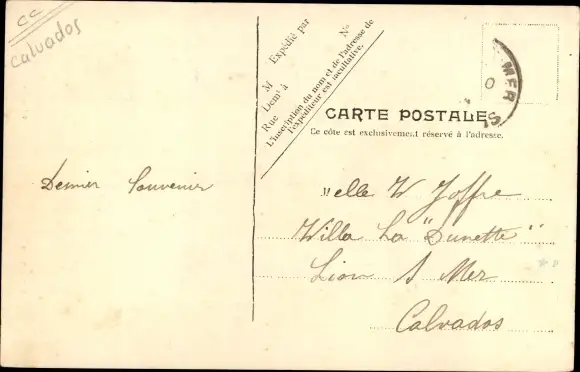 CC
Calvados
Expédié par
M
Demt à
Rue
No
L'inscription du nom et de l'adresse de
l'expéditeur est facultative.
MER
CARTE POSTALE
Ce côte est exclusivement réservé à l'adresse.
Dernier Souvenir
Melle W Joffre
Willa La "Dunette"
Lion S Mer
Calvados